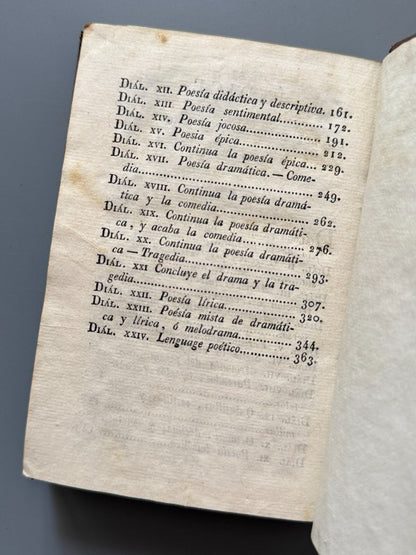 DIÁL. XII. Poesía didáctica y descriptiva. 161.
DIÁL. XIII Poesía sentimental........... 172.
DIÁL. XIV. Poesía jocosa................. 191.
DIÁL. XV. Poesia épica.................. 212.
DIÁL. XVI. Continua la poesía épica.. 229.
DIÁL. XVII. Poesía dramática.—Come-
dia................................. 249.
DIÁL. XVIII. Continua la poesía dramá-
tica y la comedia..................... 262.
DIÁL. XIX. Continua la poesía dramáti-
ca, y acaba la comedia............... 276.
DIÁL. XX. Continua la poesía dramáti-
ca—Tragedia........................ 293.
DIÁL. XXI Concluye el drama y la tra-
gedia............................... 307.
DIÁL. XXII. Poesía lírica............... 320.
DIÁL. XXIII. Poésía mista de dramáti-
ca y lírica, ó melodrama............. 344.
DIÁL. XXIV. Lenguage poético........... 363.